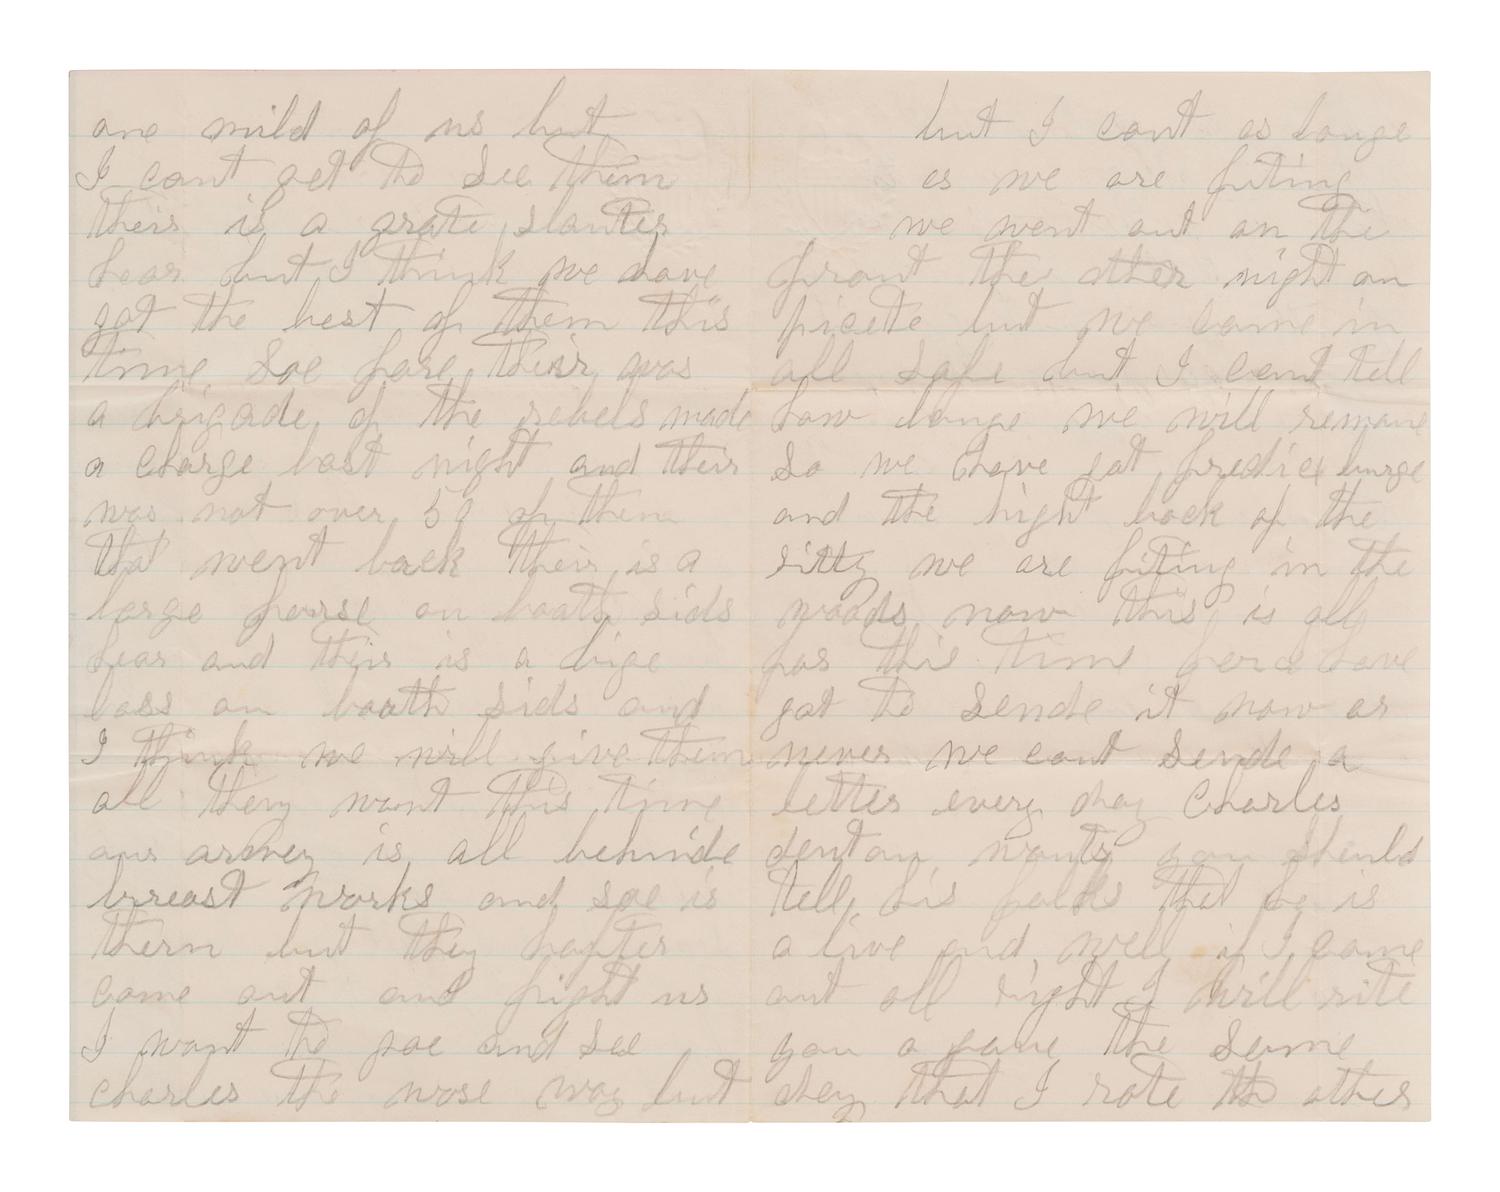 one mild of us but
I cant get to see them
theis is a grate slauter
hear but I think we have
got the best of them this
time soe fare theis was
a brigade of the rebels made
a charge last night and their
was not over 50 of them
that went back their is a
large forse on boath sids
hear and theis is a bige
loss on boath sids and
I think we will give them
all they want this time
our armey is all behinde
breast works and soe is
them but they hafter
come out and fright us
I want to goe and see
charles the wose way but
but I cant as longe
as we are fiting
we went out on the
front the other night on
picete but we came in
all safe but I cant tell
how longe we will remane
so we have got fredicxburge
and the hight back of the
sitty we are fiting in the
woods now this is all
for this time for I have
got to sende it now or
never we cant sende a
letter every day Charles
denton wants you should
tell his folks that he is
a live and well if I come
out all right I will rite
you a gane the same
day that I rote the other